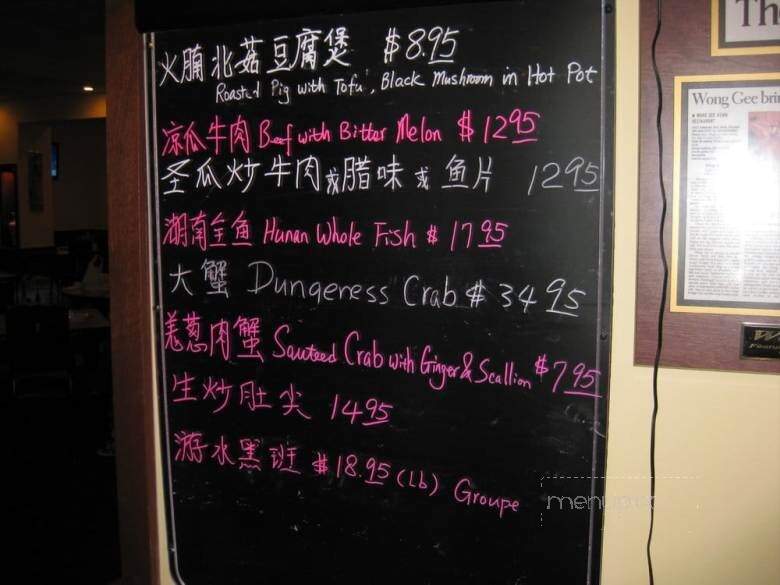 火腩北菇豆腐煲 $8.95
Roasted Pig with Tofu, Black Mushroom in Hot Pot
凉瓜牛肉 Beef with Bitter Melon $12 95
圣瓜炒牛肉或腊味或鱼片 12 95
湖南全鱼 Hunan Whole Fish $17 95
大蟹 Dungeness Crab $34 95
姜葱肉蟹 Sauteed Crab with Ginger & Scallion $7 95
生炒肚尖 14 95
游水黑斑 $18.95 (Lb) Groupe
menupix
Th
Wong Gee brin